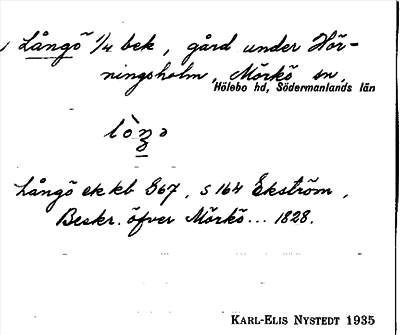 Långö 1/4 bek, gård under Hör-
ningsholm, Mörkö sn,
Hölebo hd, Södermanlands län
Långö ek kb 867, s 164 Ekström,
Beskr. öfver Mörkö... 1828.
KARL-ELIS NYSTEDT 1935